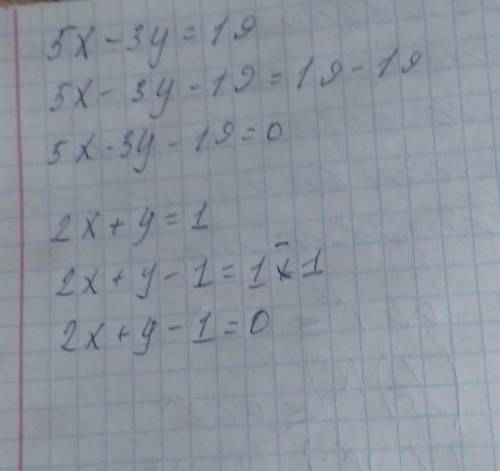 5x - 3y = 19
5x - 3y - 19 = 19 - 19
5x - 3y - 19 = 0
2x + y = 1
2x + y - 1 = 1 - 1
2x + y - 1 = 0